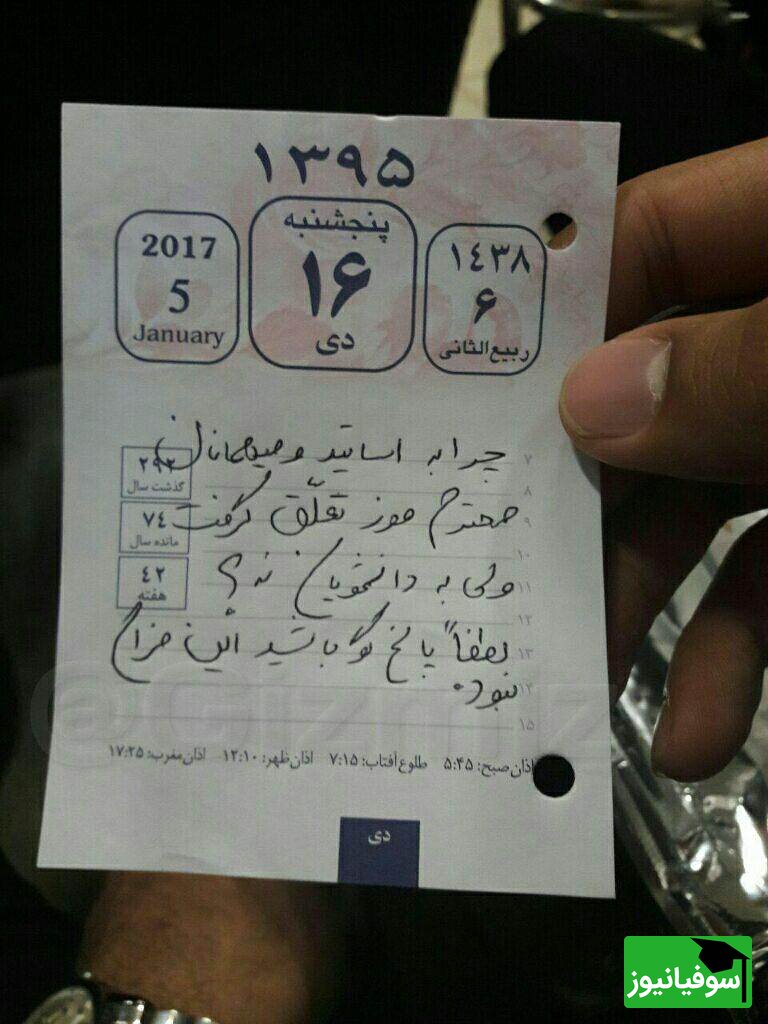 ۱۳۹۵
۱٤۳۸
۶
ربیع‌الثانی
پنجشنبه
۱۶
دی
2017
5
January
چرا به اساتید و میهمانان
محترم موز تعلّق گرفت
ولی به دانشجویان نه؟
لطفاً پاسخ گو باشید این مزاح
نبود.
۲۹۲
گذشت سال
۷٤
مانده سال
٤۲
هفته
۷
۸
۹
۱۰
۱۱
۱۲
۱۳
۱٤
۱۵
اذان صبح: ۵:٤۵ طلوع آفتاب: ۷:۱۵ اذان ظهر: ۱۲:۱۰ اذان مغرب: ۱۷:۲۵
دی
سوفیانیوز